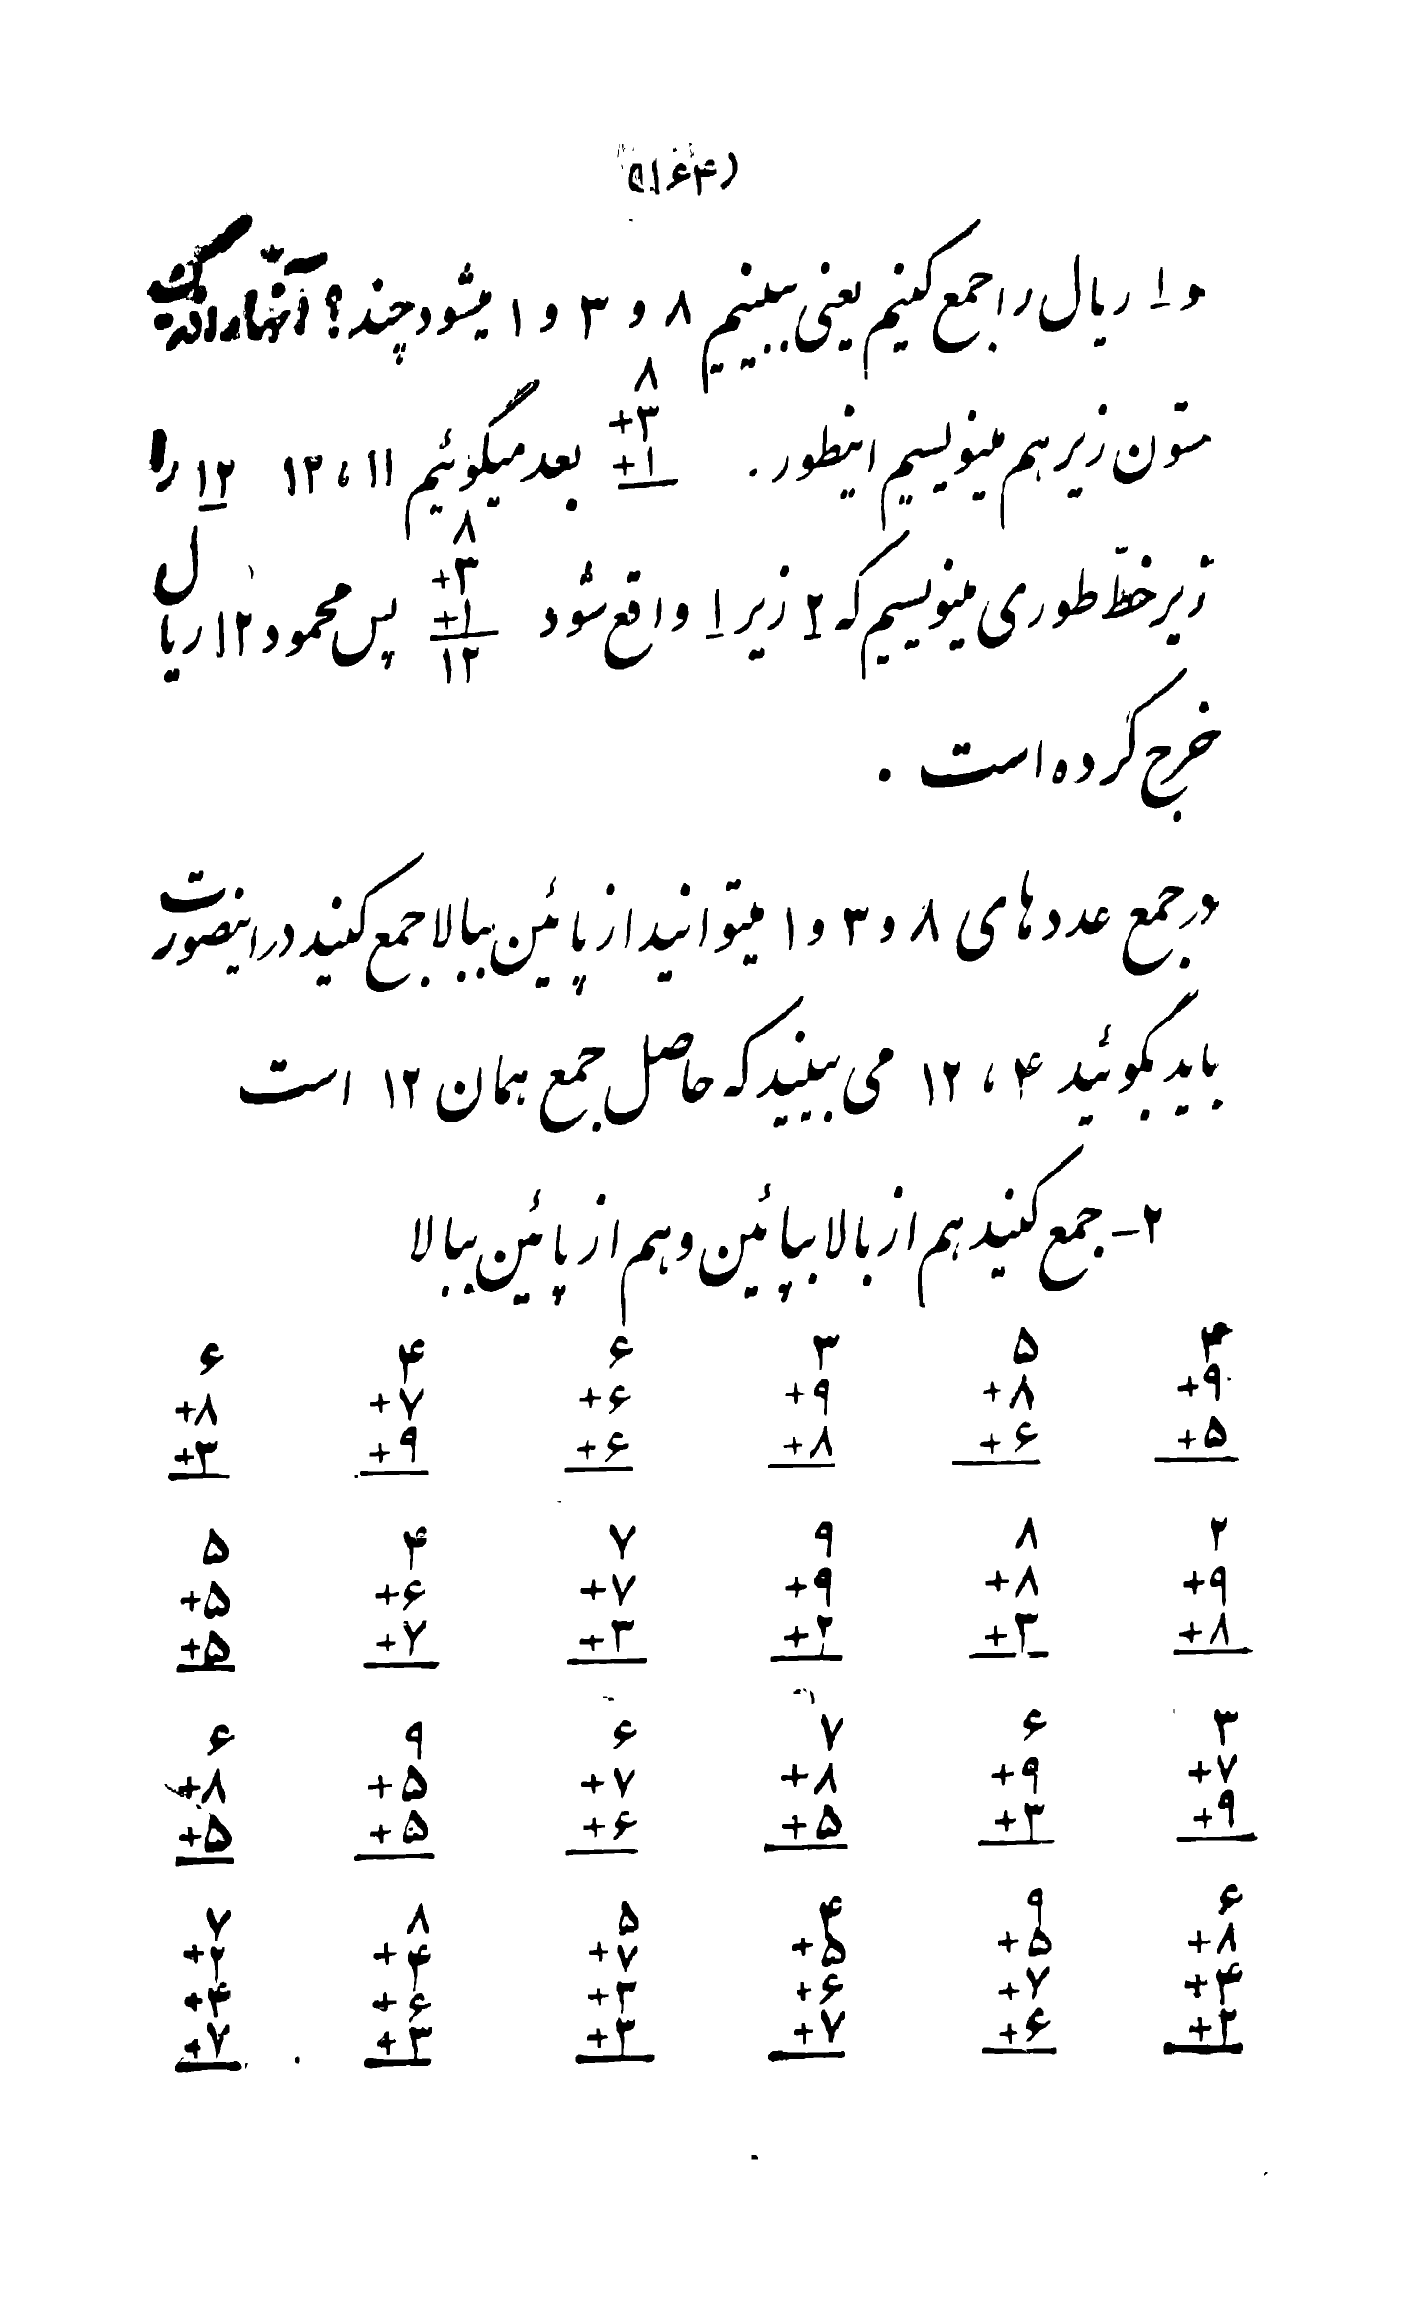 (۱۶۴)
و ۱ ریال را جمع کنیم یعنی ببینیم ۸ و ۳ و ۱ میشود چند؟ آنها را
ستون زیر هم مینویسیم اینطور. ۸ +۳ +۱ بعد میگوئیم ۱۱، ۱۲ ۱۲ را
زیر خطّ طوری مینویسیم که ۲ زیر ۱ واقع شود ۸ +۳ +۱ ۱۲ پس محمود ۱۲ ریال
خرج کرده است.
در جمع عددهای ۸ و ۳ و ۱ میتوانید از پائین ببالا جمع کنید در اینصورت
باید بگوئید ۴، ۱۲ می بینید که حاصل جمع همان ۱۲ است
۲- جمع کنید هم از بالا بپائین و هم از پائین ببالا
۴ ۵ ۳ ۶ ۴ ۶
+۹ +۸ +۹ +۶ +۷ +۸
+۵ +۶ +۸ +۶ +۹ +۳
۲ ۸ ۹ ۷ ۴ ۵
+۹ +۸ +۹ +۷ +۶ +۵
+۸ +۳ +۲ +۳ +۷ +۵
۳ ۶ ۷ ۶ ۹ ۶
+۷ +۹ +۸ +۷ +۵ +۸
+۹ +۳ +۵ +۶ +۵ +۵
۶ ۹ ۴ ۵ ۸ ۷
+۸ +۵ +۵ +۷ +۴ +۲
+۴ +۷ +۶ +۳ +۶ +۴
+۲ +۶ +۷ +۳ +۳ +۷